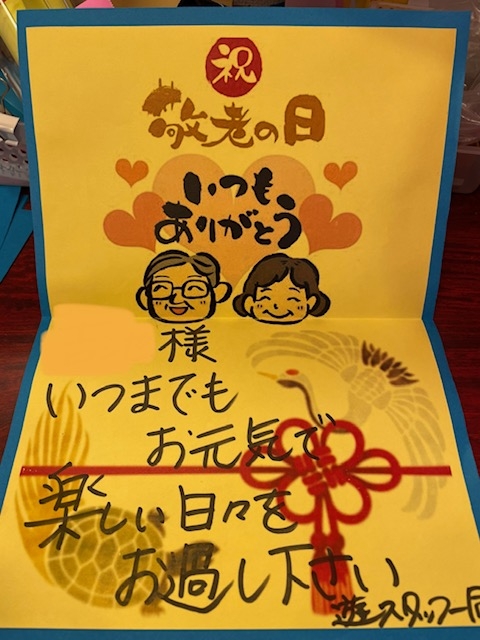 祝
敬老の日
いつも
ありがとう
様
いつまでも
お元気で
楽しい日々を
お過し下さい
遊スタッフ一同